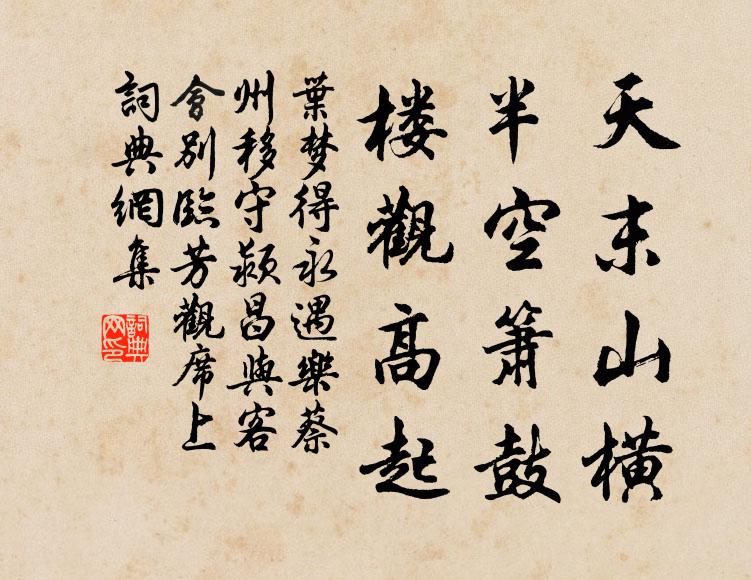 天末山横
半空箫鼓
楼觀高起
葉梦得永遇樂蔡
州移守颍昌與客
會别臨芳觀席上
詞典網集
詞典
网印